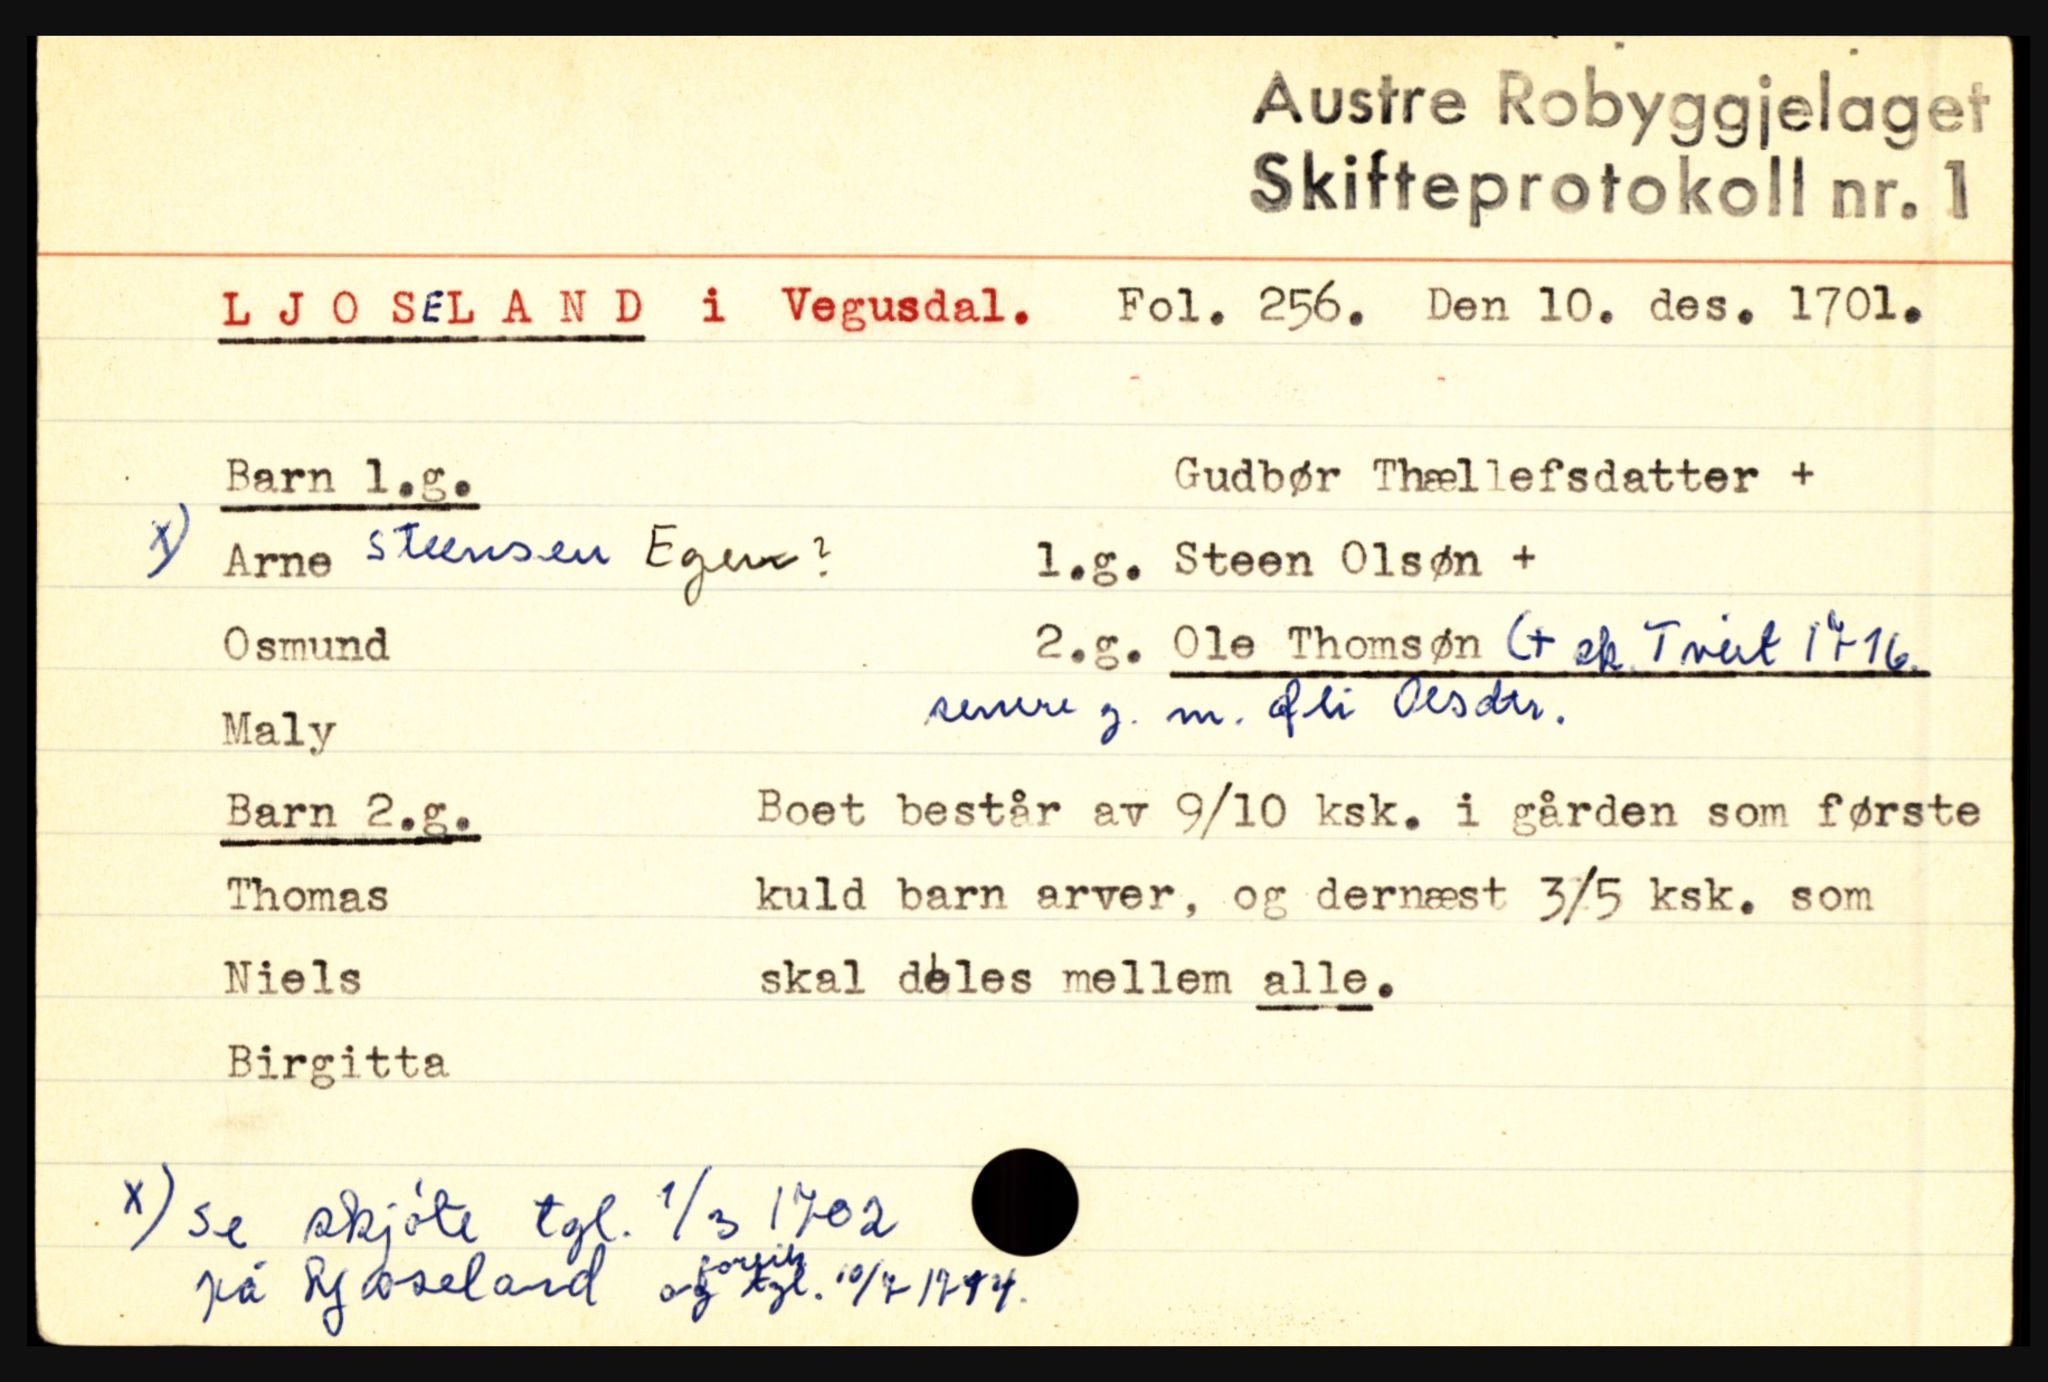 Austre Robyggjelaget
Skifteprotokoll nr. 1
LJOSELAND i Vegusdal. Fol. 256. Den 10. des. 1701.
Barn 1.g. Gudbør Thællefsdatter +
x) Arne Steensen Egen? 1.g. Steen Olsøn +
Osmund 2.g. Ole Thomsøn (+ sk. Tveit 1716.
Maly senere g. m. Øli Olsdtr.
Barn 2.g. Boet består av 9/10 ksk. i gården som første
Thomas kuld barn arver, og dernæst 3/5 ksk. som
Niels skal deles mellem alle.
Birgitta
x) Se skjøte tgl. 1/3 1702
på Ljoseland og tgl. 10/7